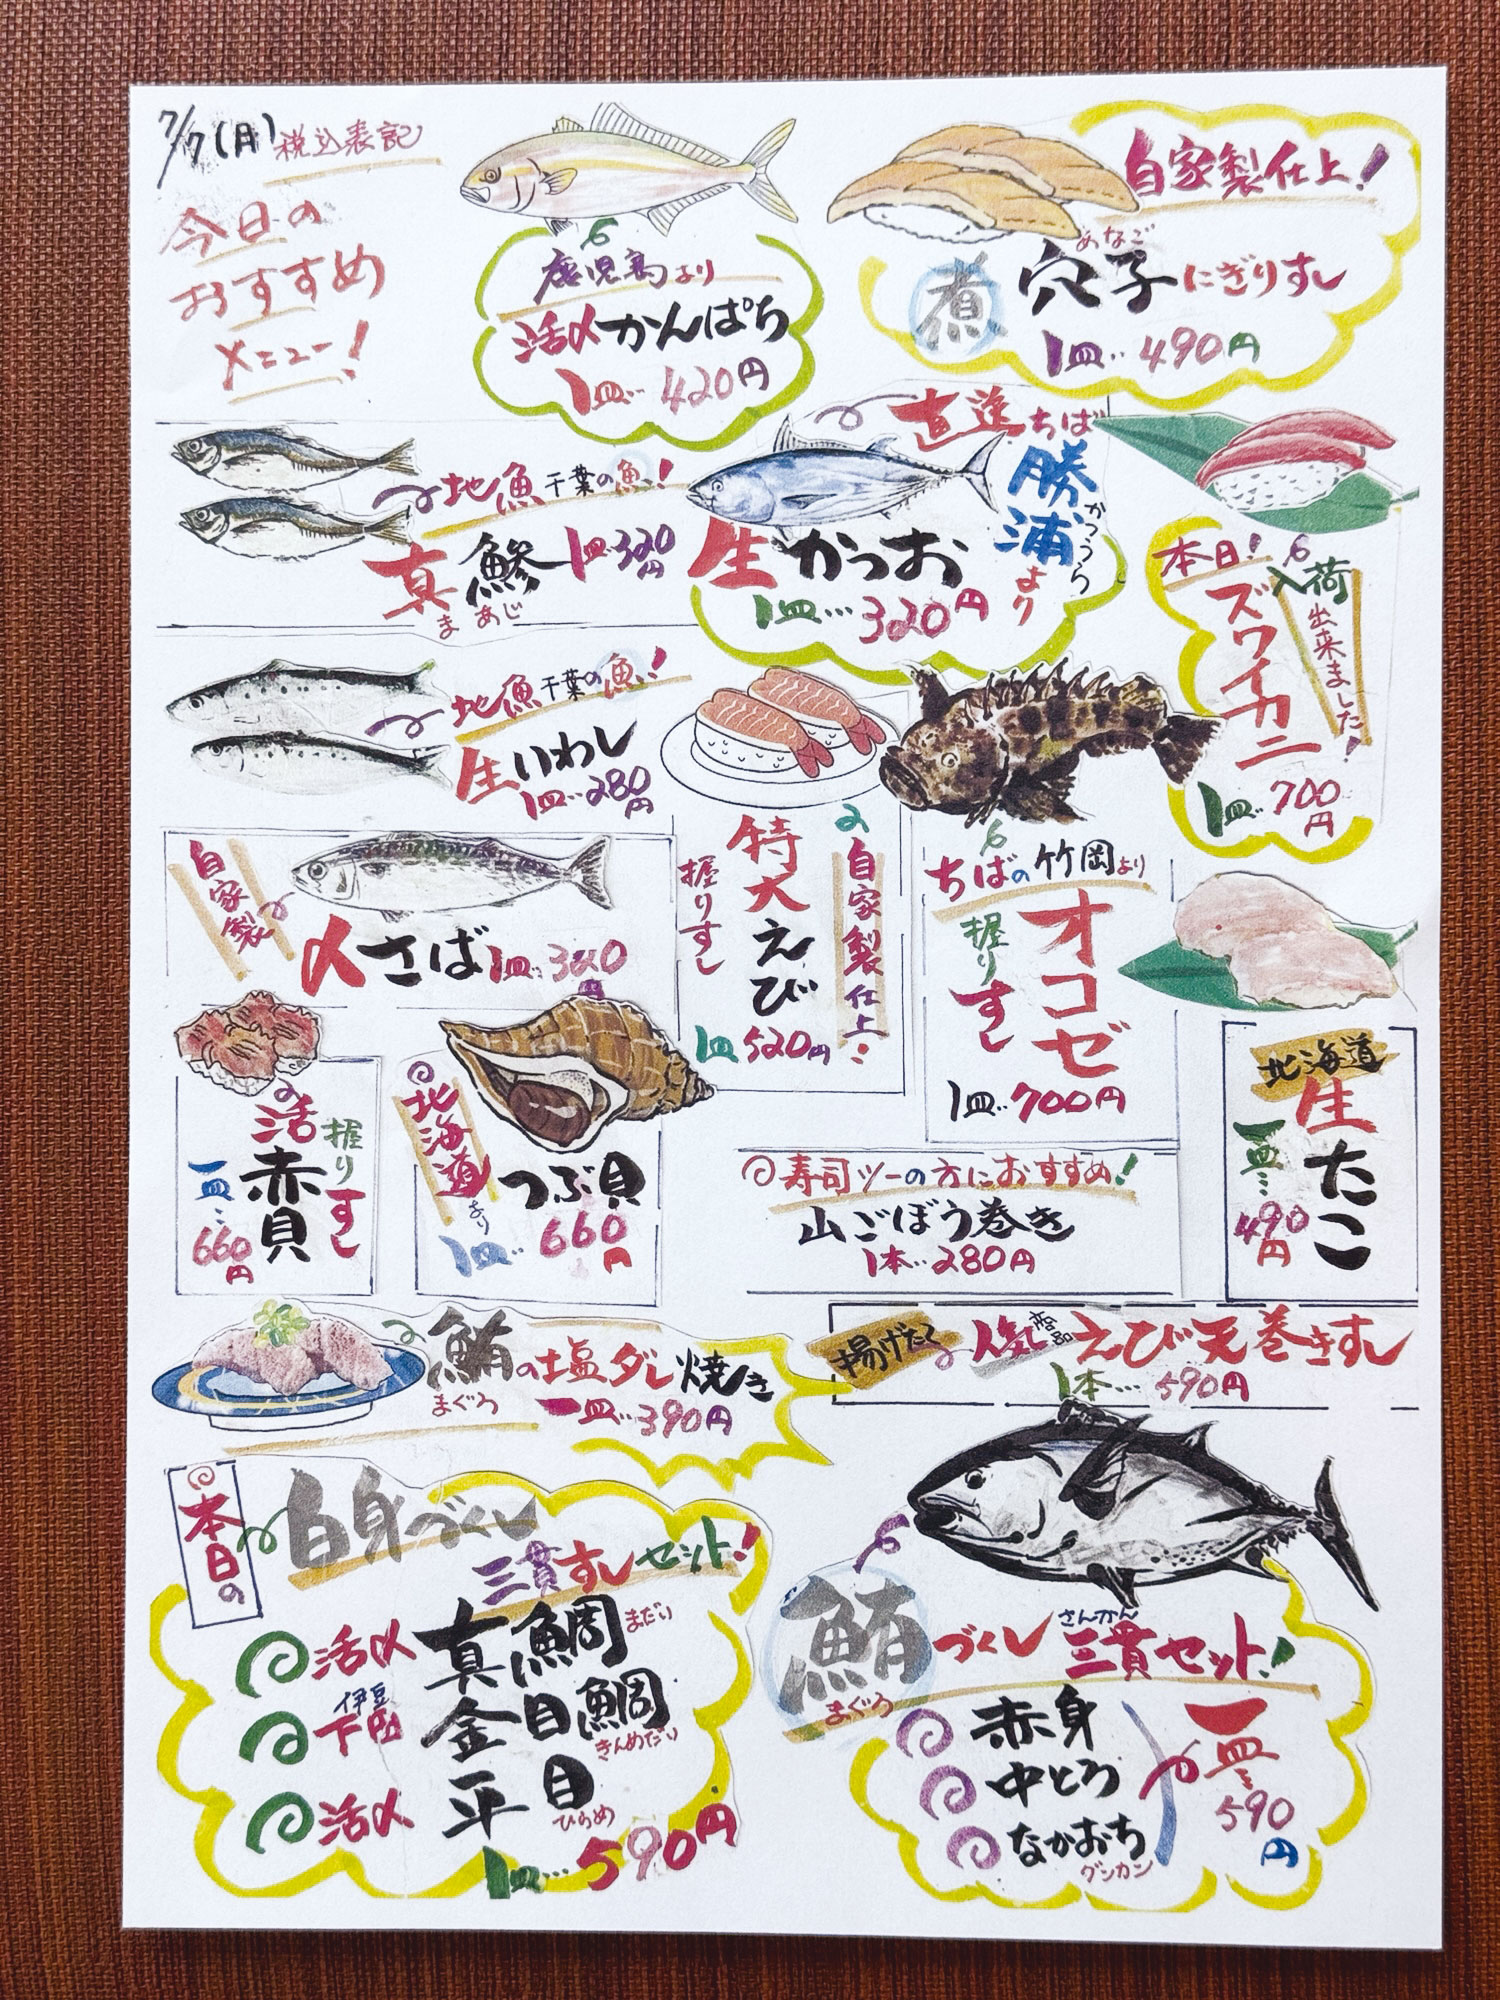 7/7(月)税込表記
今日の
おすすめ
メニュー!
鹿児島より
活〆かんぱち
1皿…420円
自家製仕上!
煮穴子にぎりすし
あなご
1皿…490円
地魚千葉の魚!
真鯵1皿320円
まあじ
直送ちば
勝浦より
かつうら
生かつお
1皿…320円
本日!入荷
出来ました!
ズワイカニ
1皿…700円
地魚千葉の魚!
生いわし
1皿…280円
自家製
〆さば1皿…320円
自家製仕上!
特大えび
握りすし
1皿520円
ちばの竹岡より
オコゼ
握りすし
1皿…700円
北海道
生たこ
一皿…490円
活赤貝
握りすし
一皿…660円
北海道より
つぶ貝
1皿…660円
寿司ツーの方におすすめ!
山ごぼう巻き
1本…280円
鮪の塩ダレ焼き
まぐろ
一皿…390円
揚げたて人気商品えび天巻きすし
1本…590円
本日の
白身づくし
三貫すしセット!
活〆真鯛
まだい
伊豆
下田金目鯛
きんめだい
活〆平目
ひらめ
1皿…590円
鮪づくし三貫セット!
まぐろ
さんかん
赤身
中とろ
なかおち
グンカン
一皿…590円